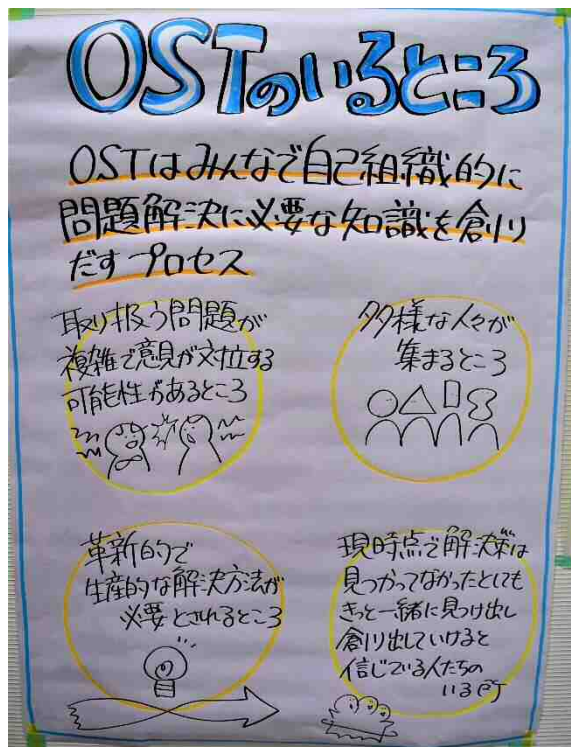 OSTのいるところ
OSTはみんなで自己組織的に
問題解決に必要な知識を創り
だすプロセス
取り扱う問題が
複雑で意見が対位する
可能性があるところ
多様な人々が
集まるところ
革新的で
生産的な解決方法が
必要とされるところ
現時点で解決策は
見つかってなかったとしても
きっと一緒に見つけ出し
創り出していけると
信じている人たちの
いる所